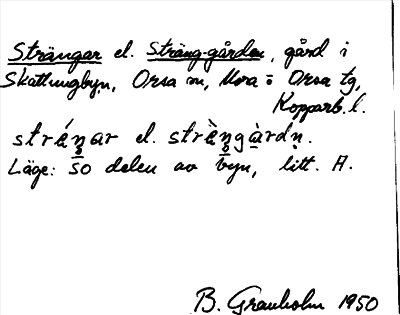 Strängar el. Sträng-gården, gård i
Skattungbyn, Orsa sn, Mora o Orsa tg,
Kopparb. l.
stráŋar el. strɛ̀ŋgàrdn̥.
Läge: SO delen av byn, litt. A.
B. Granholm 1950